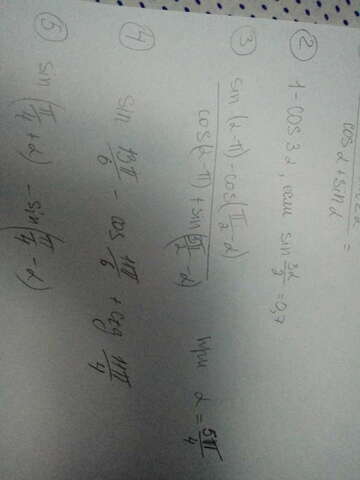 cos α + sin α =
② 1 - cos 3α, если sin 3α/2 = 0,7
③ sin(α-π) - cos(π/2 - α) / cos(α-π) + sin(3π/2 - α) при α = 5π/4
④ sin 13π/6 - cos 11π/6 + ctg 11π/4
⑤ sin(π/4 + α) - sin(π/4 - α)